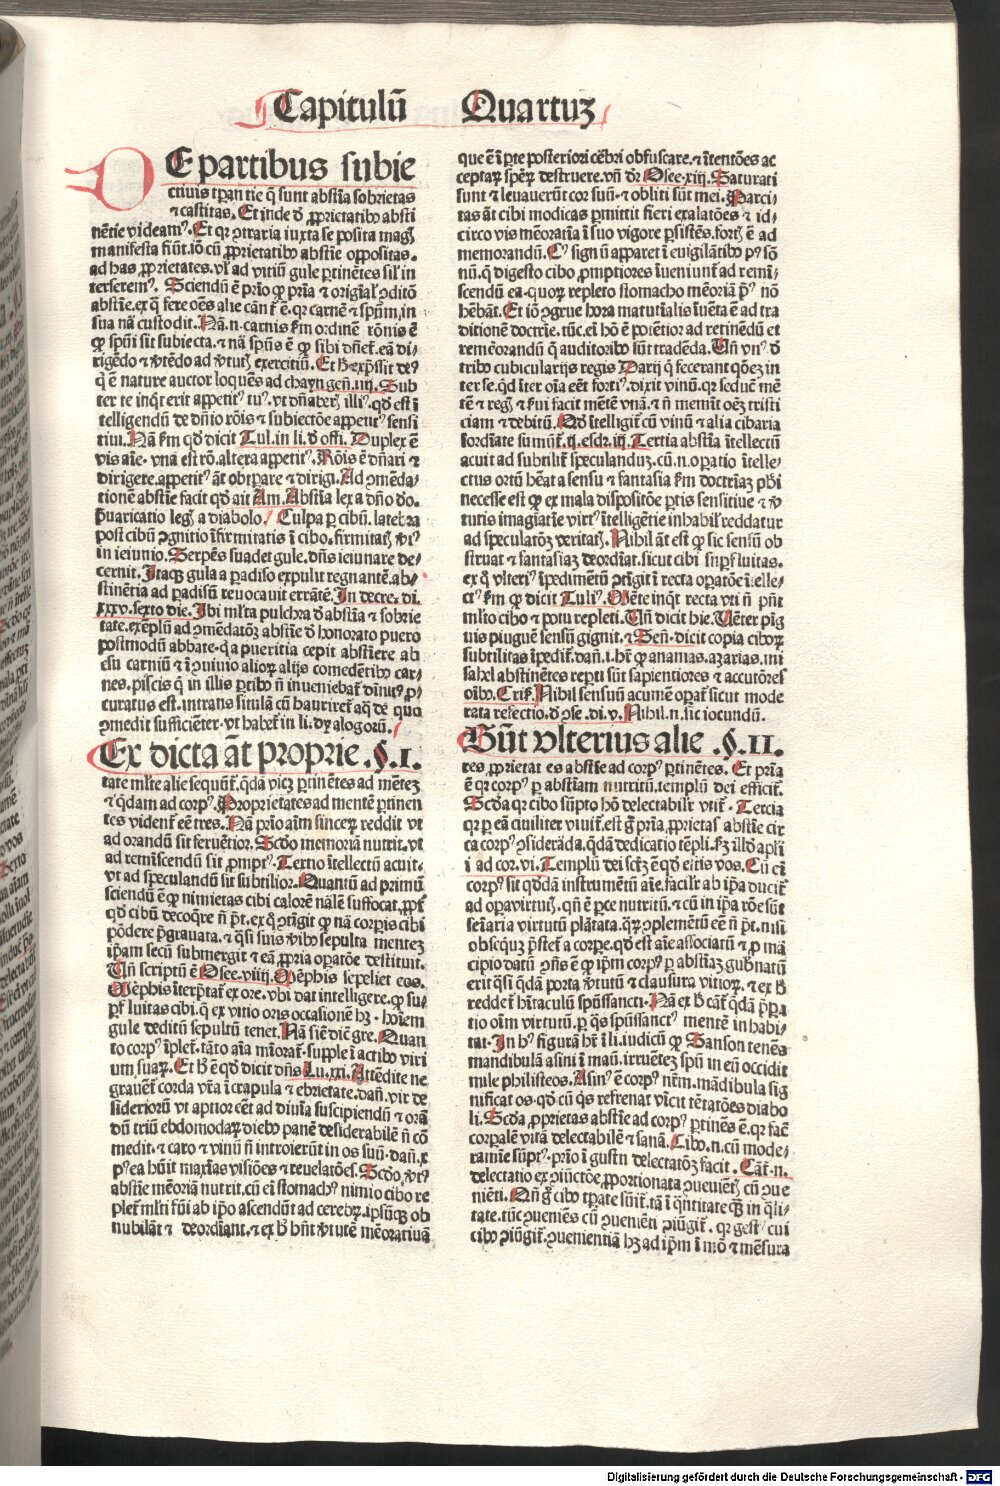 Capitulū Quartuʒ
DE partibus subie
ctiuis tꝑantie q̄ sunt abstīa sobrietas
⁊ castitas. Et inde ꝺ̄ ꝓprietatibꝰ absti
nētie videamꝰ. Et qꝛ ꝯtraria iuxta se posita magꝭ
manifesta fiūt. iō cū ꝓprietatibꝰ abstīe oppositas.
ad has ꝓprietates. vl ad vitiū gule ꝑtinētes sil in
terseremꝰ. Sciendū ē prīo ꝙ pria ⁊ origīal ꝯditō
abstīe. ex q̄ fere oēs alie cān̄t ē. qꝛ carnē ⁊ spm̄, in
sua nā custodit. Nā.n. carnis km̄ ordinē rōnis ē
ꝙ spūi sit subiecta. ⁊ nā spūs ē ꝙ sibi dn̄et. eā di/
rigēdo
telligendū de dn̄io rōis ⁊ subiectōe appetitꝰ sensi
tiui. Nā km̄ qd dicit Tul. in li. ꝺ̄ offi. Duplex ē
vis aīe. vna est rō. altera appetitꝰ. Rōis ē dn̄ari ⁊
dirigere. appetitꝰ āt obtꝑare ⁊ dirigi. Ad ꝯmēda/
tionē abstīe facit qd ait Am. Abstīa lex a dn̄o ꝺo.
p̄uaricatio legꝭ a diabolo. Culpa ꝑ cibū. latebra
post cibū ꝯgnitio īfirmitatis ī cibo. firmitatꝭ
in ieiunio. Serpēs suadet gule. dn̄s ieiunare de/
cernit. Itaqꝫ gula a ꝑadiso expulit regnantē. ab/
stinētia ad ꝑadisū reuocauit errātē. In decre. di.
xxxv. sexto die. Ibi mlta pulchra ꝺ̄ abstīa ⁊ sobrie
tate. exēplū ad ꝯmēdatōꝫ abstīe ꝺ̄ honorato puero
postmodū abbate. qͥ a pueritia cepit abstīere ab
esu carniū ⁊ ī ꝯuiuio alioꝝ alijs comedētibꝰ car/
nes. piscis q̄ in illis ꝑtibꝰ n̄ inueniebat dīnitꝰ ꝓ/
curatus est. intrans situlā cū hauriret aq̄ de quo
ꝯmedit sufficiēter. vt habet in li. dyalogoꝝ.
Ex dicta āt proprie .§.I.
tate mlte alie sequūt. qdā vicꝫ ꝑtinētes ad mētē
⁊ qdam ad corpꝰ. Proprietates ad mentē ꝑtinen
tes vident eē tres. Nā prīo aīm sinceꝝ reddit vt
ad orandū sit feruētior. Scdo memoriā nutrit. vt
ad remīscendū sit ꝓmptꝰ. Tertio ītellectū acuit.
vt ad speculandū sit subtilior. Quantū ad primū
sciendū ē ꝙ nimietas cibi calorē nālē suffocat. ꝓpt
qd cibū decoqre n̄ pt. ex q̄ ꝯtigit ꝙ nā corpis cibi
pōdere pgrauata. ⁊ qsi suis sepulta menteꝫ
ipam secū submergit ⁊ eā ꝓpria oꝑatōe destituit.
Un̄ scriptū ē Osee.viiij. Mēphis sepeliet eos.
Mēphis īterptat ex ore. vbi dat intelligere. ꝙ su/
pfluitas cibi. q̄ ex vitio oris occasionē hꝫ. hoīem
gule deditū sepultū tenet. Nā siē dic̄ gre. Quan
to corpꝰ īplet. tāto aīa mīorat. supple ī actibꝰ viri
utum suaꝝ. Et h̄ ē qd dicit dn̄s Lu.xxi. Attēdite ne
grauent corda vr̄a ī crapula ⁊ ebrietate. dan̄. vir de
sideriorū vt aptior eēt ad diuīa suscipiendū ⁊ orā
dū triū ebdomodaꝝ diebꝰ panē desiderabilē n̄ cō
medit. ⁊ caro ⁊ vinū n̄ introierūt in os suū. dan̄.x
pꝰ ea hūit maxīas visiōes ⁊ reuelatōes. Scdo
abstīe mēoriā nutrit. cū ei stomachꝰ nimio cibo re
plet mlti fūi ab ipo ascendūt ad cerebꝝ. ipsūqꝫ ob
nubilāt ⁊ deordīant. ⁊ ex h̄ hn̄t mēoratiuā
que ē ī ꝑte posteriori cēbri obfuscare. ⁊ ītentōes ac
ceptaꝝ spēꝝ destruere. vn̄ dr̄ Osee.xiij. Saturati
sunt ⁊ leuauerūt cor suū. ⁊ obliti sūt mei. Parci/
tas āt cibi modicas ꝑmittit fieri exalatōes ⁊ id/
circo vis mēoratīa ī suo vigore ꝑsistēs. fortꝰ ē ad
memorandū. Cꝰ signū apparet ī euigilātibꝰ pꝰ sō
nū. q̄ digesto cibo ꝓmptiores īueniunt ad remī/
scendū ea. quoꝝ repleto stomacho mēoriā pꝰ nō
hēbāt. Et iō ꝯgrue hora matutīalis īuēta ē ad tra
ditionē doctrīe. tūc. ei hō ē potētior ad retinēdū et
remēorandū q̄ auditoribꝰ sūt tradēda. Un̄ vnꝰ ꝺ̄
tribꝰ cubicularijs regis Darij q̄ fecerant qōeꝫ in
ter se. qd īter oīa eēt fortiꝰ. dixit vinū. qꝛ seduē mē
tē ⁊ regꝭ ⁊ facit mētē vnā. ⁊ n̄ memīt oēꝫ tristi
ciam ⁊ debitū. Qd ītelligit cū vinū ⁊ alia cibaria
īordīate sumunt. ij. esdr. iij. Tertia abstīa ītellectū
acuit ad subtilit speculanduꝫ. cū.n. oꝑatio ītelle/
ctus ortū hēat a sensu ⁊ fantasia km̄ doctrīaꝫ phi
necesse est ꝙ ex mala dispositōe ꝑtis sensitiue ⁊
tutis imagiatīe virtꝰ ītelligētie inhabil reddatur
ad speculatōꝫ veritatꝭ. Nihil āt est ꝙ sic sensū ob
struat ⁊ fantasiaꝫ deordīat. sicut cibi supfluitas.
ex q̄ vlteriꝰ īpedimētū ꝯtigit ī recta oꝑatōe ītelle/
ctꝰ km̄ ꝙ dicit Tuliꝰ. Mēte inqt recta vti n̄ pn̄t
mlto cibo ⁊ potu repleti. Un̄ dicit hie. Uēter pīg
uis pinguē sensū gignit. ⁊ Sen. dicit copia ciboꝝ
subtilitas īpedit. dan̄.i. hr̄ ꝙ ananias. azarias. mi
sahel abstinētes reꝑti sūt sapientiores ⁊ accutōres
oībꝰ. Crisꝰ. Nihil sensuū acumē oꝑat sicut mode
rata refectio. ꝺ̄ ꝯse. di. v. Nihil.n. sic iocundū.
Sūt vlterius alie .§.II.
tes ꝓprietates abstīe ad corpꝰ ꝑtinētes. Et prīa
ē qꝛ corpꝰ ꝑ abstīam nutritū. templū dei efficit.
Scda qꝛ cibo sūpto hō delectabilr vtit. Tercia
qꝛ ꝑ eā ciuiliter viuit. est g̊ pria ꝓprietas abstīe cir
ca corpꝰ ꝯsiderāda. qdā dedicatio tēpli. kꝫ illd apli
i ad cor. vi. Templū dei sctꝫ ē qd estis vos. Cū ei
corpꝰ sit qddā instrumētū aīe. facilr ab ipa ducit
ad oꝑa virtutꝭ. qn̄ ē ꝑce nutritū. ⁊ cū in ipa rōe sūt
seīaria virtutū plātata. qꝝ ꝯplemētū eē n̄ pt. nisi
obseqͥū pstet a corpe. qd est aīe associatū ⁊ ꝓ mā
cipio datū ꝯn̄s ē ꝙ ipm corpꝰ ꝑ abstīaꝫ gubnatū
erit qsi qdā porta ⁊ clausura vitioꝝ. ⁊ ex h̄
reddet hītaculū spūssancti. Nā ex h̄ cāt qdā ppa
tio oīm virtutū. ꝑ q̄s spūssanctꝰ mentē inhabi
tat. In hꝰ figurā hr̄ ī li. iudicū ꝙ Sanson tenēs
mandibulā asini ī manū. irruētes spū in eū occidit
mile philisteos. Asinꝰ ē corpꝰ nrm. mādibula sig
nificat os. qd cū qs refrenat vīcit tētatōes diabo
li. Scda ꝓprietas abstīe ad corpꝰ ꝑtinēs ē. qꝛ fac̄
corpalē vitā delectabilē ⁊ sanā. Cibꝰ.n. cū mode/
ramīe sūptꝰ. prīo ī gustu delectatōꝫ facit. Cāt.n.
delectatio ex ꝯiūctōe ꝓportionata ꝯueniētꝭ cū ꝯue
niēti. Qn̄ g̊ cibꝰ tꝑate sūit. tā ī qntitate qꝫ in qli/
tate. tūc ꝯueniēs cū ꝯueniēti ꝯiūgit. qꝛ gest cui
cibꝰ ꝯiūgit. ꝯuenientiā hꝫ ad ipm ī mō ⁊ mēsura
Digitalisierung gefördert durch die Deutsche Forschungsgemeinschaft - DFG